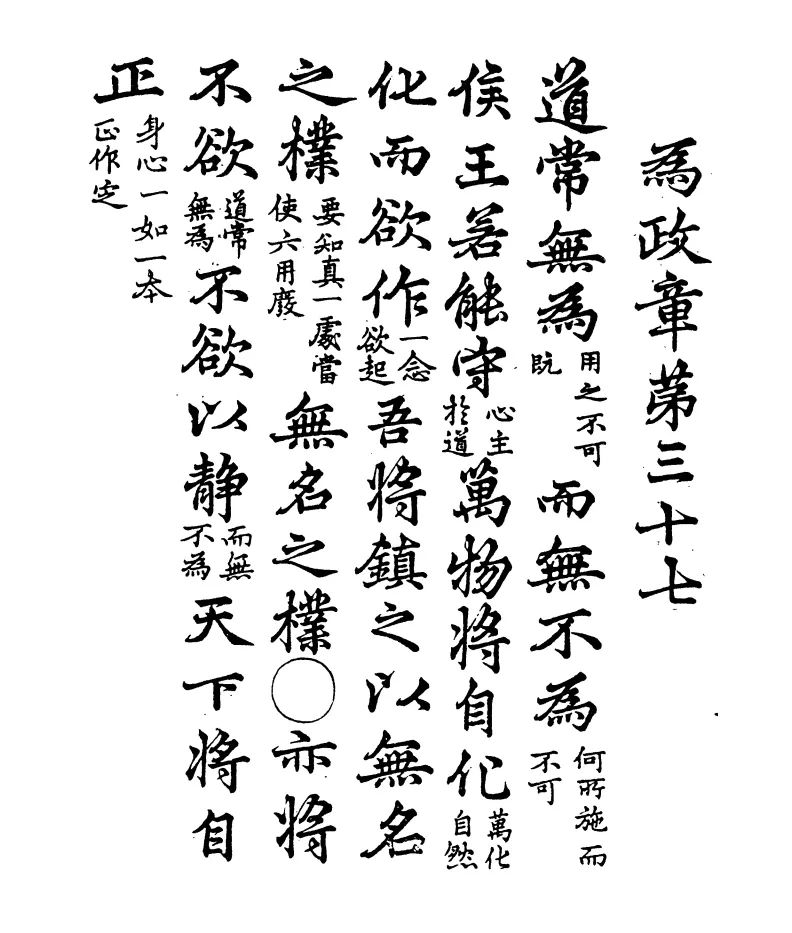 為政章第三十七
道常無為用之不可既而無不為何所施而不可
侯王若能守心主於道萬物將自化萬化自然
化而欲作一念欲起吾將鎮之以無名
之樸要知真一處當使六用廢無名之樸○亦將
不欲道常無為不欲以静而無不為天下將自
正身心一如一本正作定